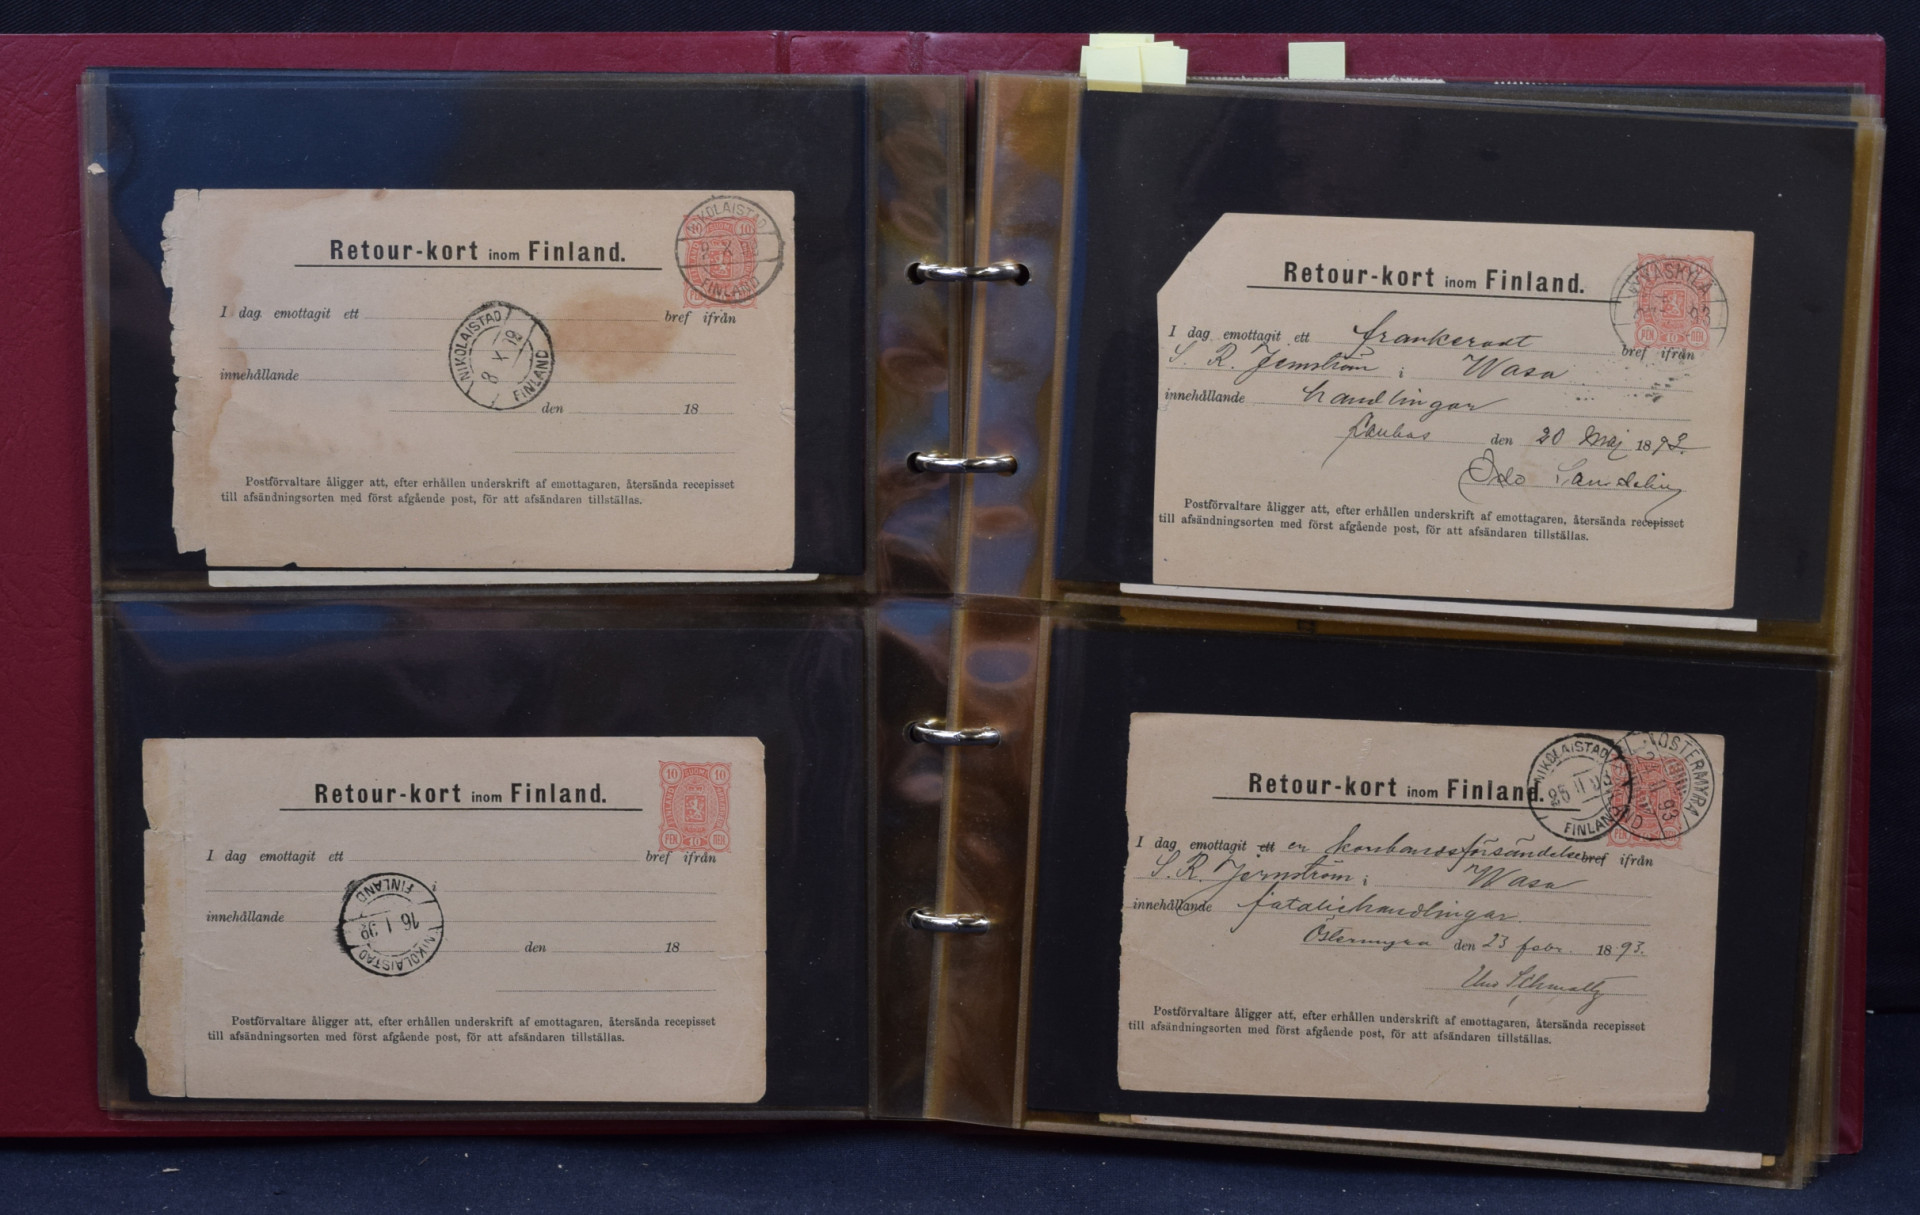 Retour-kort inom Finland.
NIKOLAISTAD
FINLAND
10
I dag emottagit ett bref ifrån
NIKOLAISTAD
8 X
FINLAND
innehållande
den 18
Postförvaltare åligger att, efter erhållen underskrift af emottagaren, återsända recepisset
till afsändningsorten med först afgående post, för att afsändaren tillställas.
Retour-kort inom Finland.
I dag emottagit ett frankeradt bref ifrån
S. R. Jernström i Wasa
innehållande handlingar
den 20 Maj 1893.
Postförvaltare åligger att, efter erhållen underskrift af emottagaren, återsända recepisset
till afsändningsorten med först afgående post, för att afsändaren tillställas.
Retour-kort inom Finland.
10 SUOMI 10
FINLAND
PEN 10 ПЕН
I dag emottagit ett bref ifrån
innehållande
FINLAND
16 I
NIKOLAISTAD
den 18
Postförvaltare åligger att, efter erhållen underskrift af emottagaren, återsända recepisset
till afsändningsorten med först afgående post, för att afsändaren tillställas.
Retour-kort inom Finland.
NIKOLAISTAD
25 II 93
FINLAND
ÖSTERMYRA
II 93
I dag emottagit ett en korsbandsförsändelse bref ifrån
S. R. Jernström i Wasa
innehållande fataliehandlingar
Östermyra den 23 febr. 1893.
Postförvaltare åligger att, efter erhållen underskrift af emottagaren, återsända recepisset
till afsändningsorten med först afgående post, för att afsändaren tillställas.